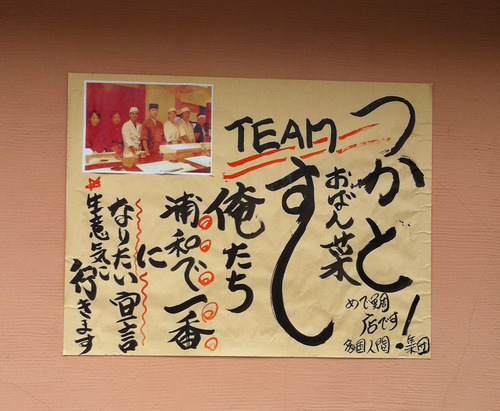 つかと!
おばん菜
めで鯛
店です
人間
集団
TEAM
すし
俺たち
浦和で一番
に
なりたい宣言
生意気に
行きます